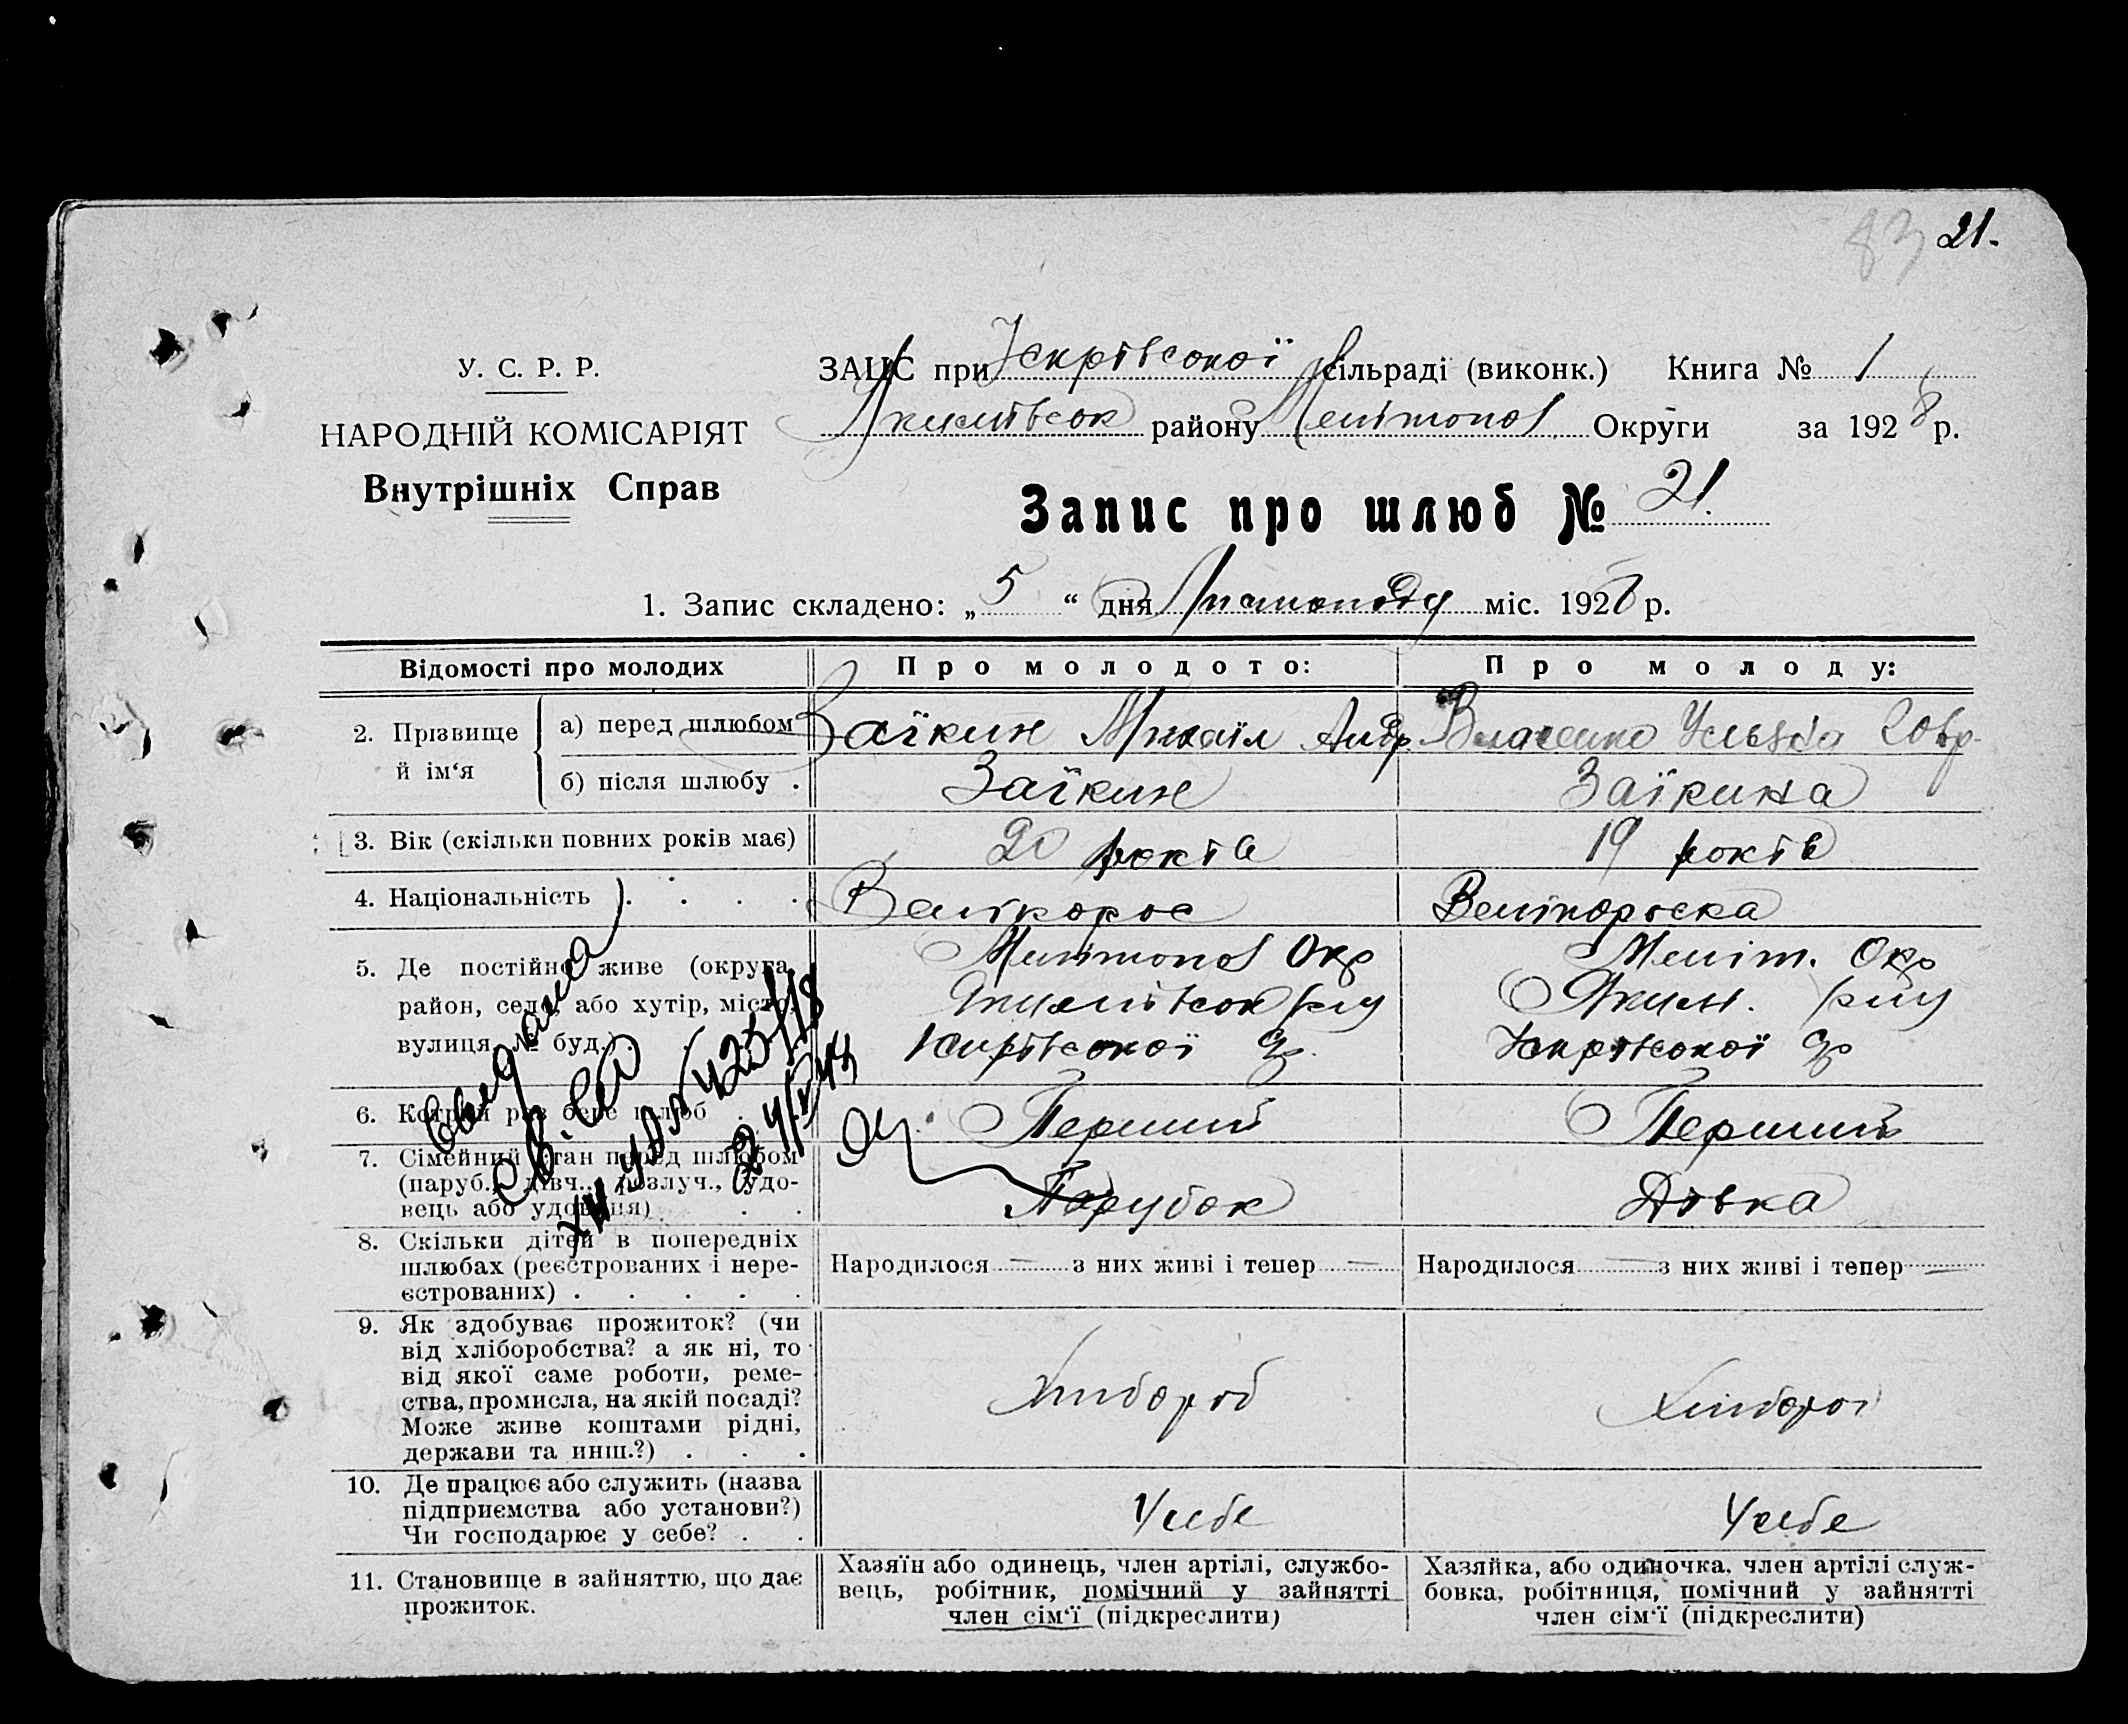 83 21.
У. С. Р. Р.
НАРОДНІЙ КОМІСАРІЯТ
Внутрішніх Справ
ЗАЦС при Іскрівської сільраді (виконк.) Книга № 1
Якимівськ району Мелітопол Округи за 1928 р.
Запис про шлюб № 21.
1. Запис складено: „5“ дня Листопаду міс. 1928 р.
Відомості про молодих
Про молодого:
Про молоду:
2. Прізвище й ім‘я
а) перед шлюбом
Заїкин Михаїл Андр.
б) після шлюбу .
Заїкин
Заїкина
3. Вік (скільки повних років має)
20 років
19 років
4. Національність . . . .
Велікорос
Велікороска
5. Де постійно живе (округа, район, село, або хутір, місто, вулиця, № буд.) .
Мелітопол Окр
Якимівськ р-ну
Іскрівської
Меліт. Окр
Яким. р-ну
Іскрівської
6. Котрий раз бере шлюб .
Перший
Перший
7. Сімейний стан перед шлюбом
(паруб., дівч., розлуч., удо-
вець або удовиця) . .
Парубок
Дівка
8. Скільки дітей в попередніх
шлюбах (реєстрованих і нере-
єстрованих) . . . . .
Народилося — з них живі і тепер —
Народилося — з них живі і тепер —
9. Як здобуває прожиток? (чи
від хліборобства? а як ні, то
від якої саме роботи, реме-
ства, промисла, на якій посаді?
Може живе коштами рідні,
держави та инш.?) . . .
Хлібороб
Хлібороб
10. Де працює або служить (назва
підприємства або установи?)
Чи господарює у себе? . .
У себе
У себе
11. Становище в зайняттю, що дає
прожиток.
Хазяїн або одинець, член артілі, службо-
вець, робітник, помічний у зайнятті
член сім‘ї (підкреслити)
Хазяйка, або одиночка, член артілі служ-
бовка, робітниця, помічний у зайнятті
член сім‘ї (підкреслити)